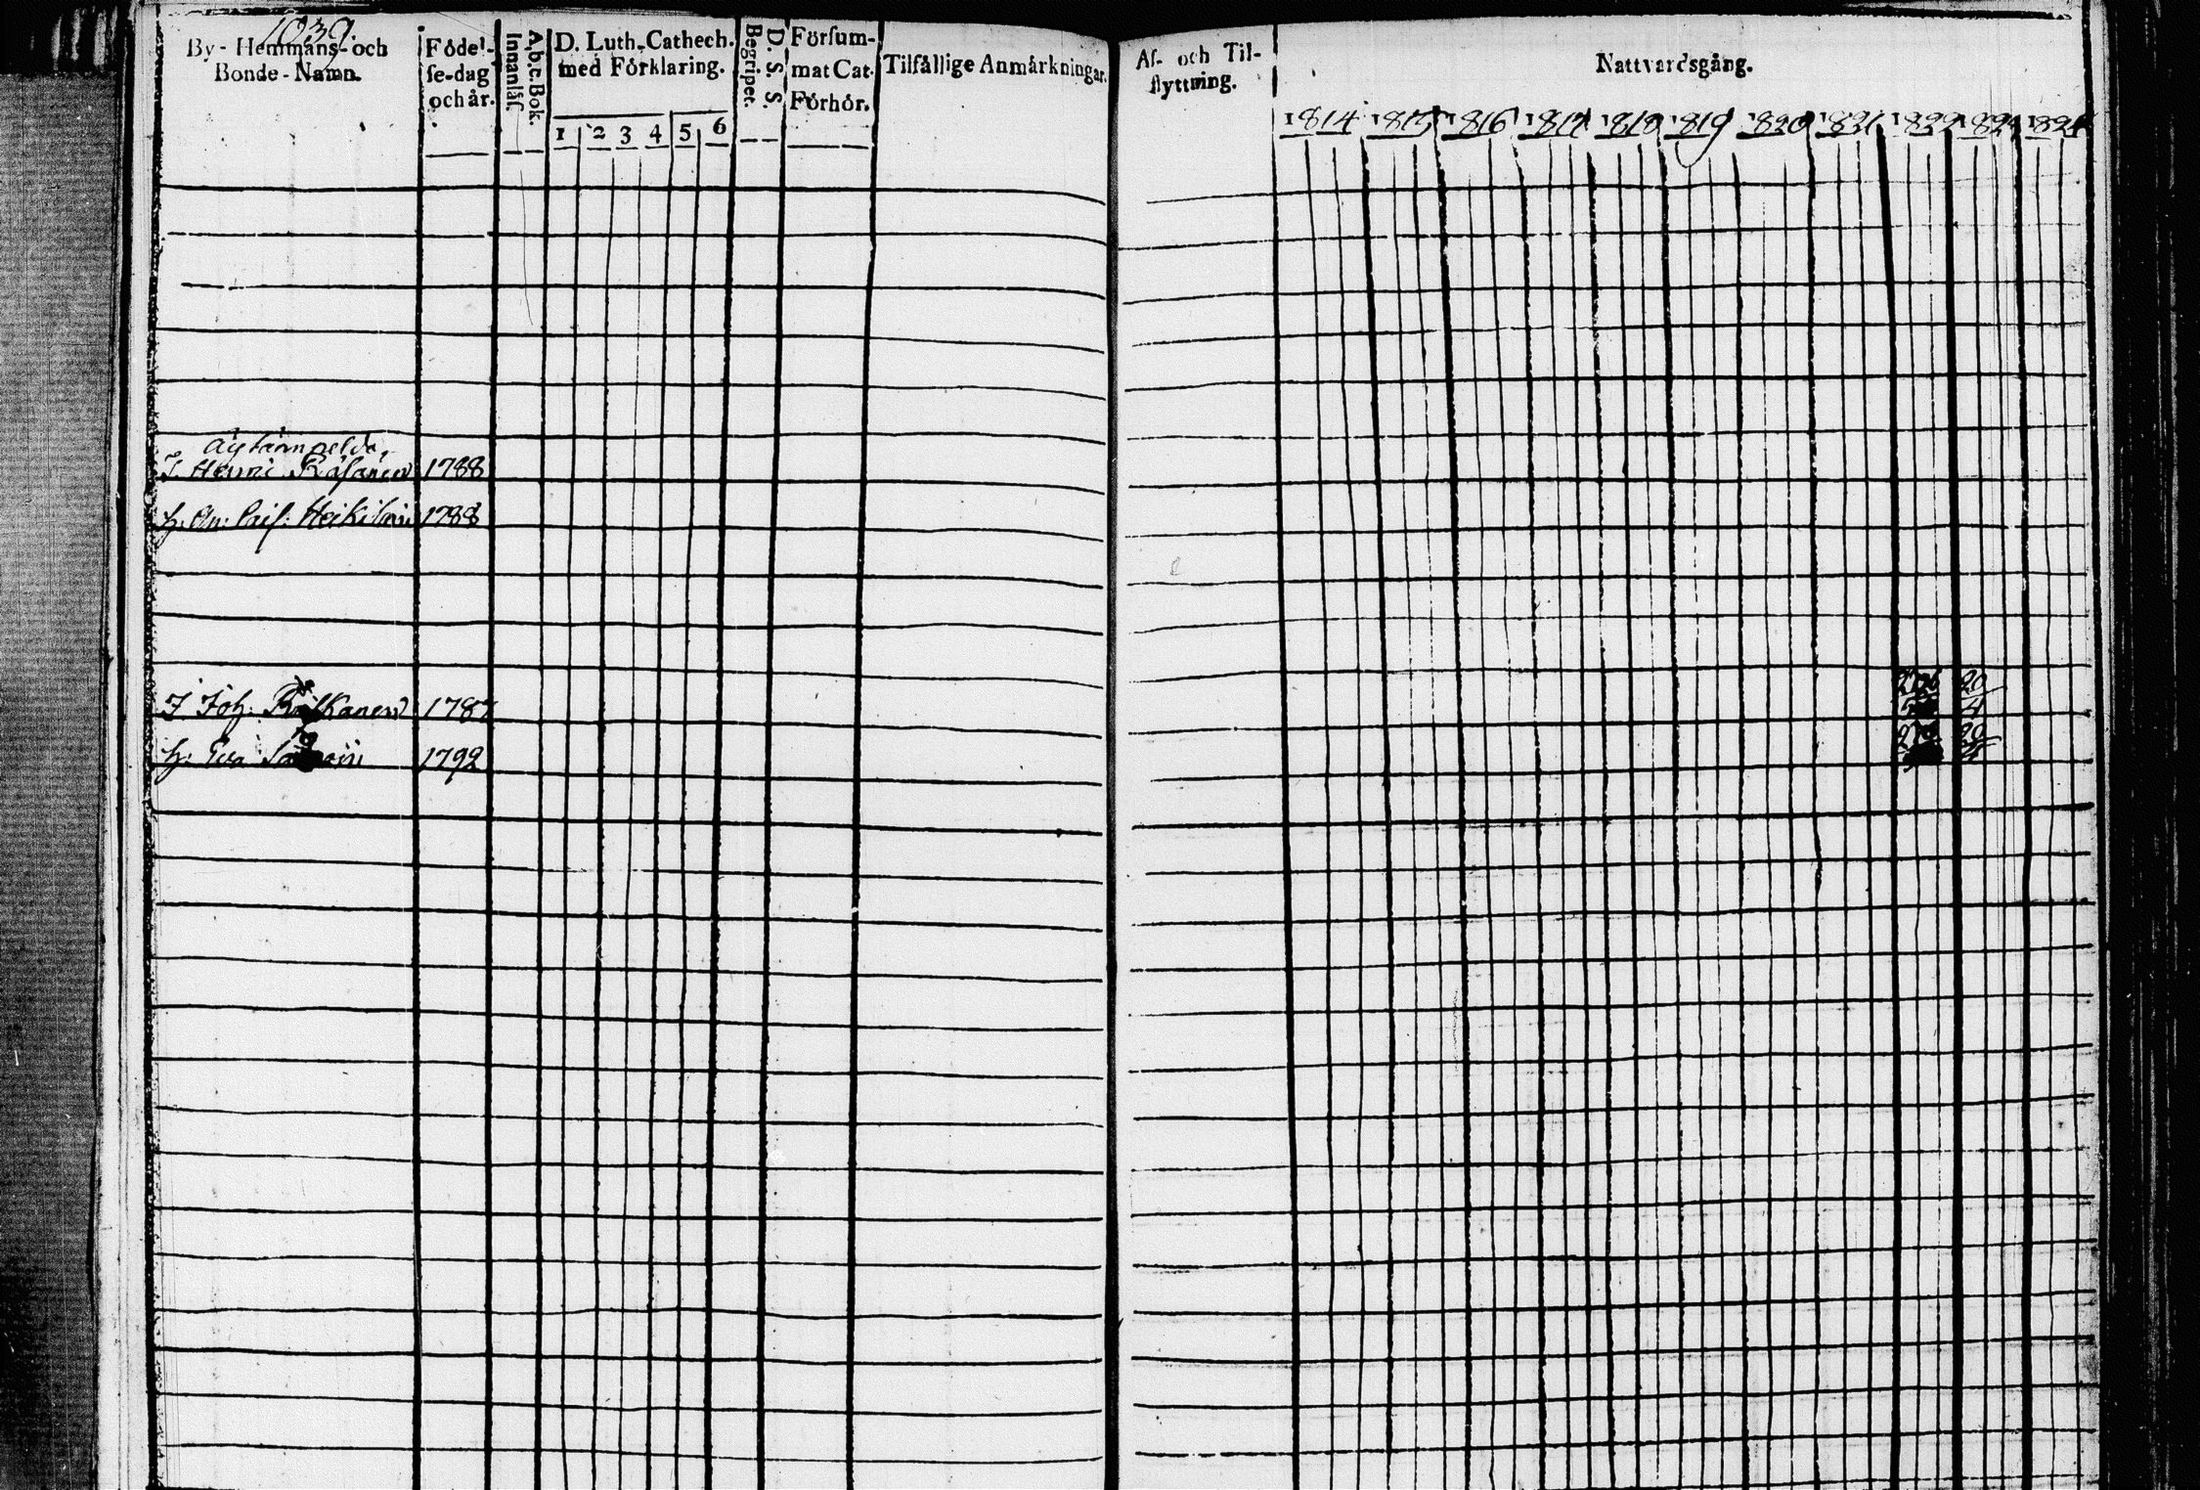 1039.
By- Hemmans- och
Bonde-Namn.
Födel-
se-dag
och år.
A,b,c,Bok.
Innanläs.
D. Luth. Cathech.
med Förklaring.
1 2 3 4 5 6
D. S. S.
Begripet.
Försum-
mat Cat.
Förhör.
Tilfällige Anmärkningar.
Af- och Til-
flyttning.
Nattvardsgång.
1814 1815 1816 1817 1818 1819 1820 1821 1822 1823 1824
J. Henric Räsänen 1788
h: An: Heikitari 1788
J Joh: 1787
20
4
h: Eva 1792
20